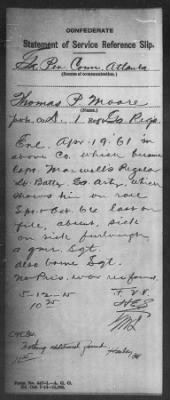 CONFEDERATE
Statement of Service Reference Slip.
St. Pen Com, Atlanta
(Source of communication.)
Thomas P. Moore
pvt. Co. D. 1 Ga Regs.
Enl. Apr. 19, '61 in
above Co. which became
Capt. Maxwell's Regular
Lt. Batty. Ga. Arty. which
shows him on roll
Sept. & Oct. 64 last on
file, absent, sick
on sick furlough
a Sgt.
also borne Sgt.
No Pris. war rec found.
5-12-15
HES
Nothing additional found.